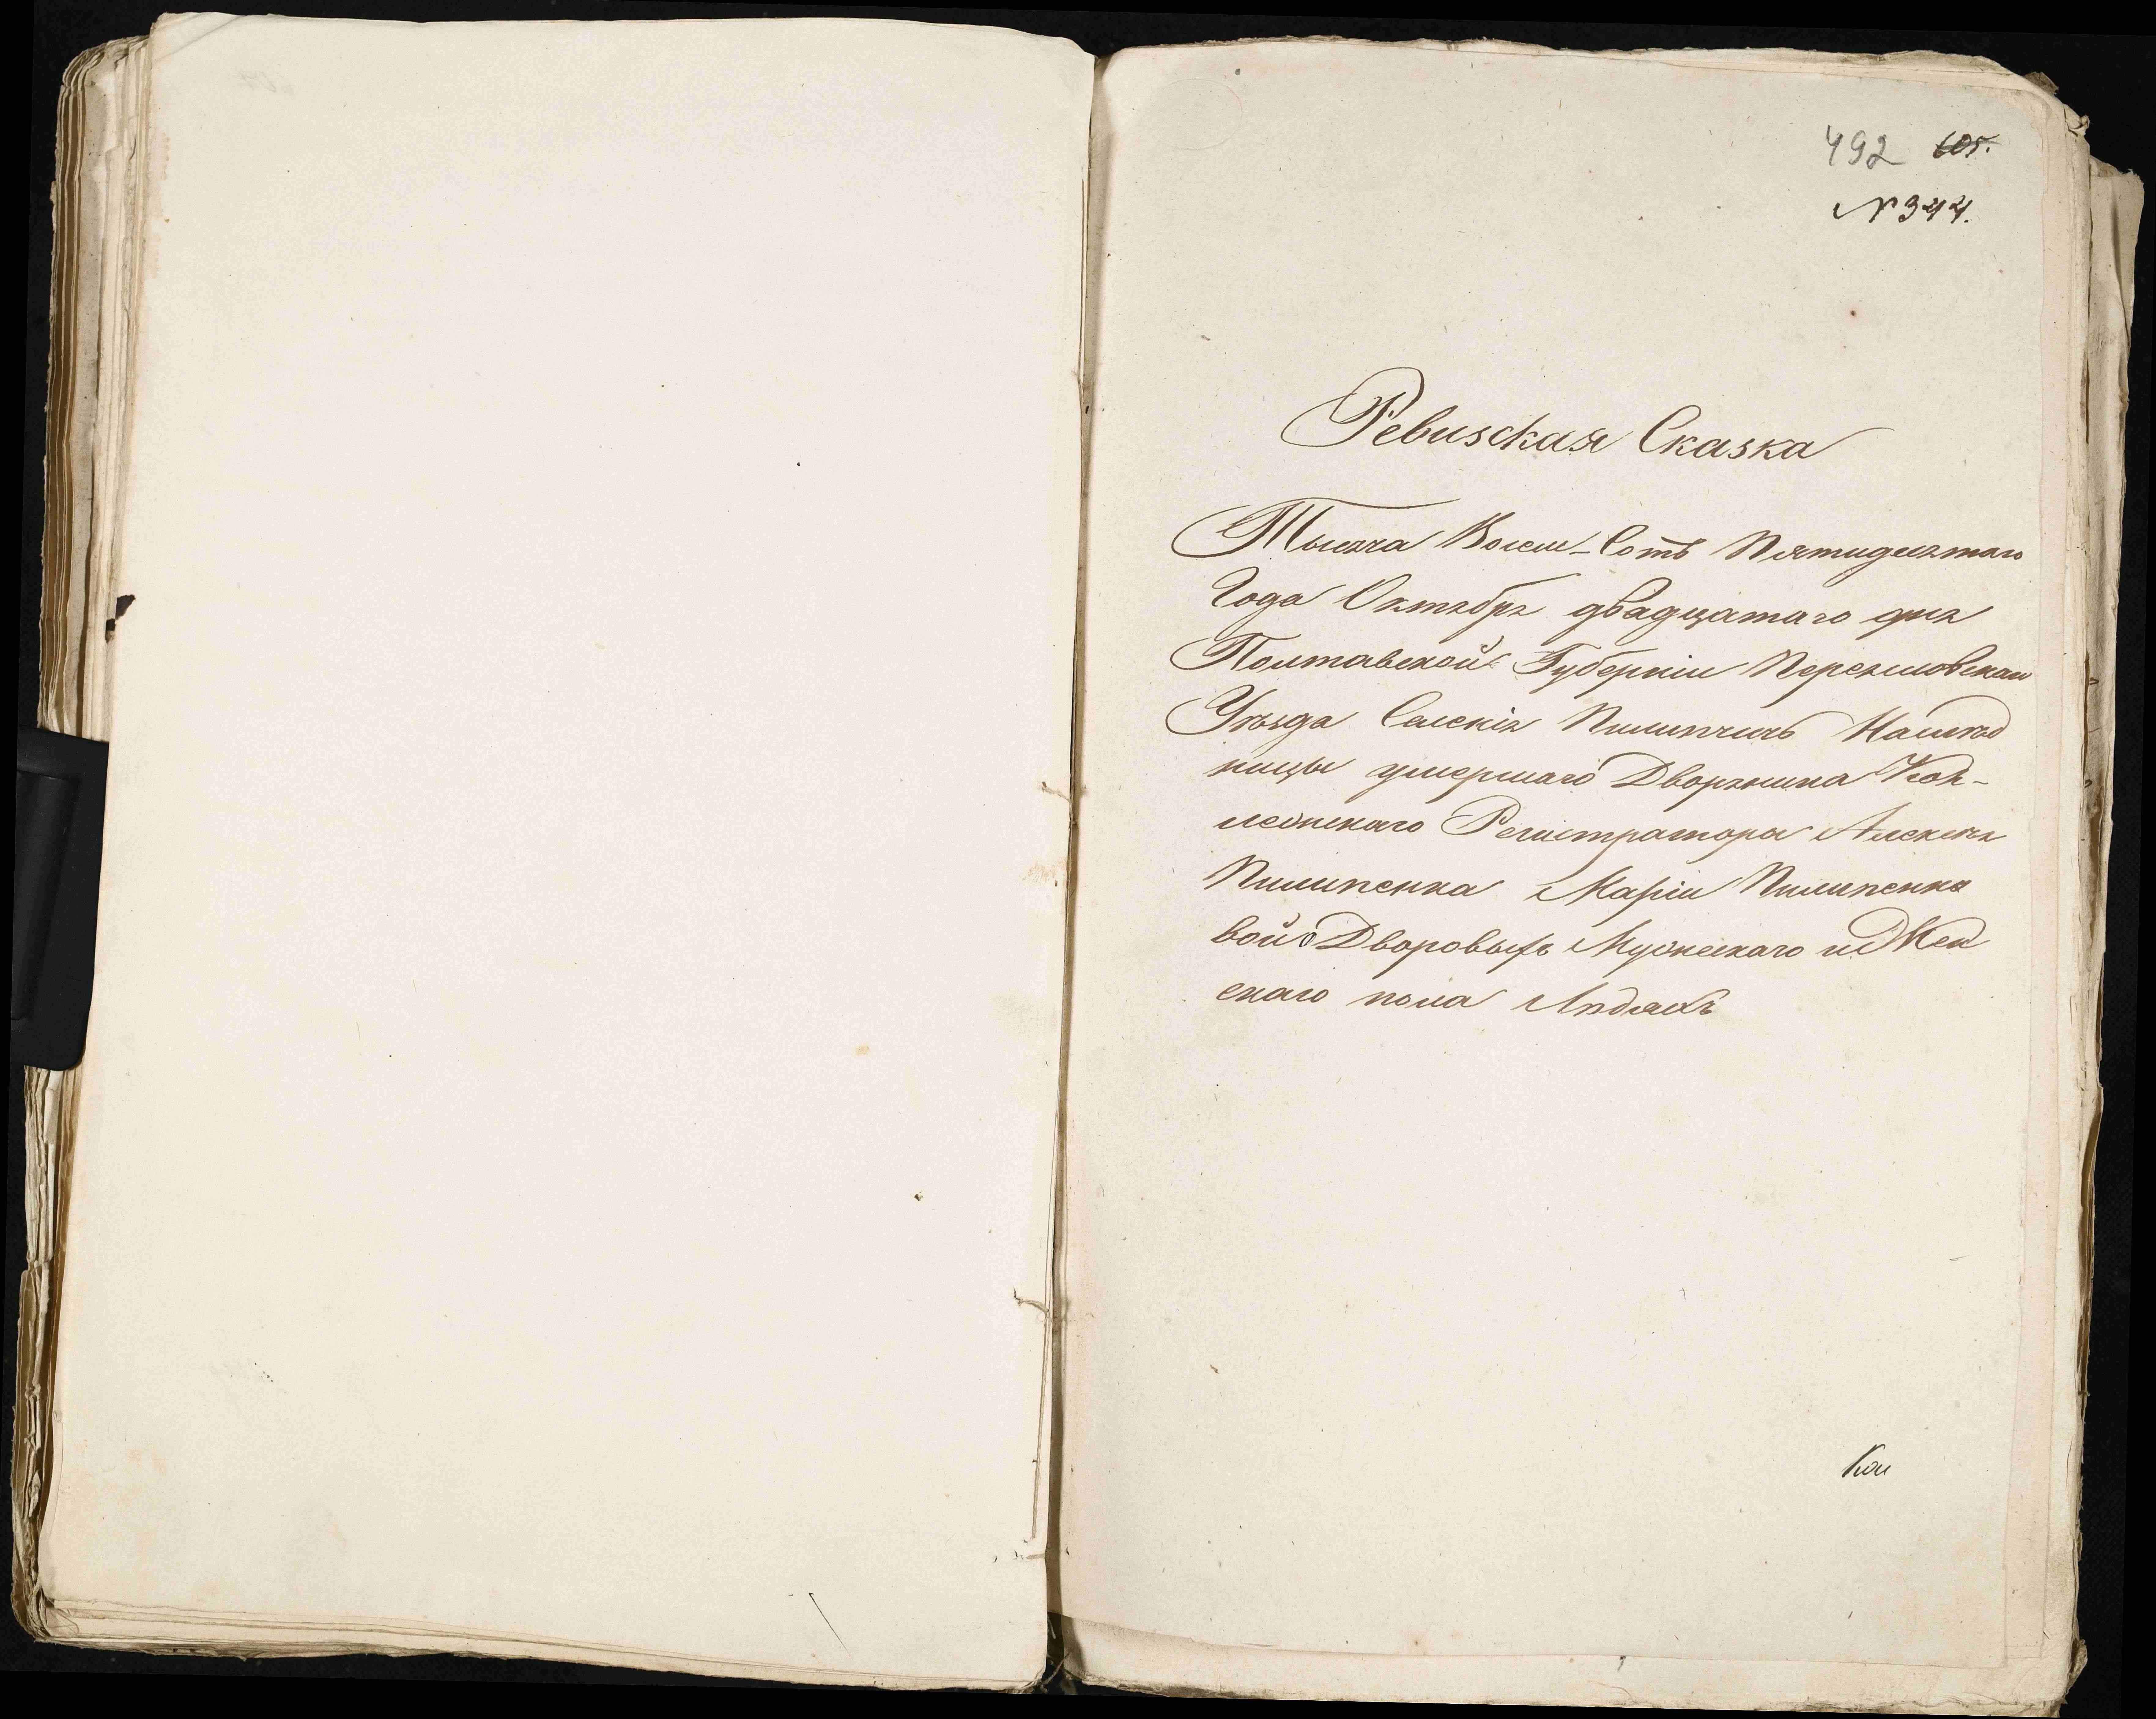 492 605.
№ 344.
Ревизская Сказка
Тысяча Восем-Сотъ Пятидесятаго
Года Октября двадцатаго дня
Полтавской Губерніи Переяславскаго
Уѣзда Селенія Пилипчихъ Наслѣд
ницы умершаго Дворянина Кол-
лежскаго Регистратора Алексея
Пилипенка Маріи Пилипенко
вой о Дворовыхъ Мужескаго и Жен
скаго пола Людяхъ